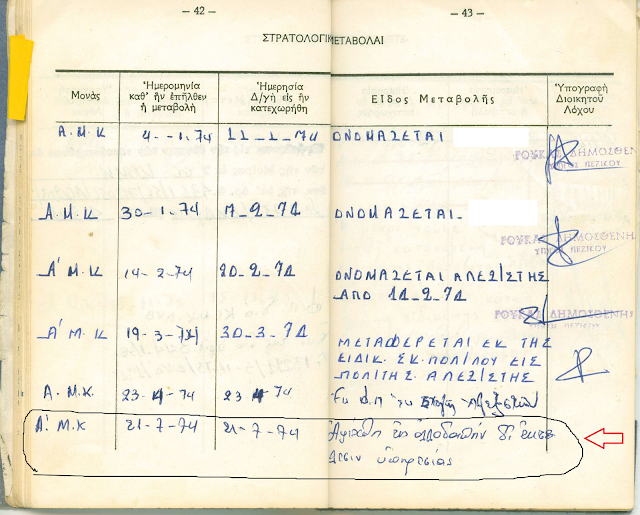 — 42 —
— 43 —
ΣΤΡΑΤΟΛΟΓΙΚΑΙ ΜΕΤΑΒΟΛΑΙ
Μονὰς
Ἡμερομηνία καθ' ἣν ἐπῆλθεν ἡ μεταβολὴ
Ἡμερησία Δ/γὴ εἰς ἣν κατεχωρήθη
Εἶδος Μεταβολῆς
Ὑπογραφὴ Διοικητοῦ Λόχου
Α.Μ.Κ 4-1-74 ΟΝΟΜΑΖΕΤΑΙ
ΡΟΥΚΑΣ ΔΗΜΟΣΘΕΝ
ΠΕΖΙΚΟΥ
Α.Μ.Κ 30-1-74 7-2-74 ΟΝΟΜΑΖΕΤΑΙ
ΡΟΥΚΑΣ ΔΗΜΟΣΘΕΝΗ
ΠΕΖΙΚΟΥ
Α' Μ.Κ 14-2-74 20-2-74 ΟΝΟΜΑΖΕΤΑΙ ΑΛΕΞ/ΣΤΗΣ
ΑΠΟ 14-2-74
ΡΟΥΚΑΣ ΔΗΜΟΣΘΕΝΗΣ
ΠΕΖΙΚΟΥ
Α' Μ.Κ 19-3-74 30-3-74 ΜΕΤΑΦΕΡΕΤΑΙ ΕΚ ΤΗΣ
ΕΙΔΙΚ. ΣΚ. ΠΟΛ/ΛΟΥ ΕΙΣ
ΠΟΛΙΤΗΣ. ΑΛΕΞ/ΣΤΗΣ
Α.Μ.Κ. 23-4-74 23 4 74
Α'. Μ.Κ 21-7-74 21-7-74 Ἀφίχθη εἰς ἀλλοδαπὴν δι' ἐκτέ-
λεσιν ὑπηρεσίας